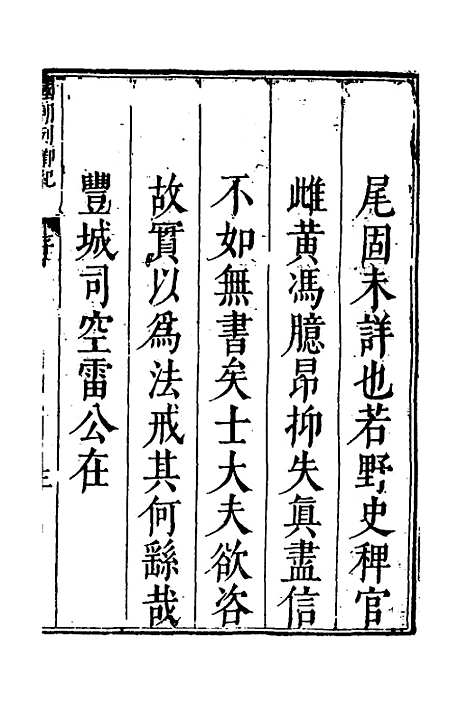 尾固未詳也若野史稗官
雌黃馮臆昻抑失眞盡信
不如無書矣士大夫欲咨
故實以爲法戒其何繇哉
豐城司空雷公在
國朝列卿紀